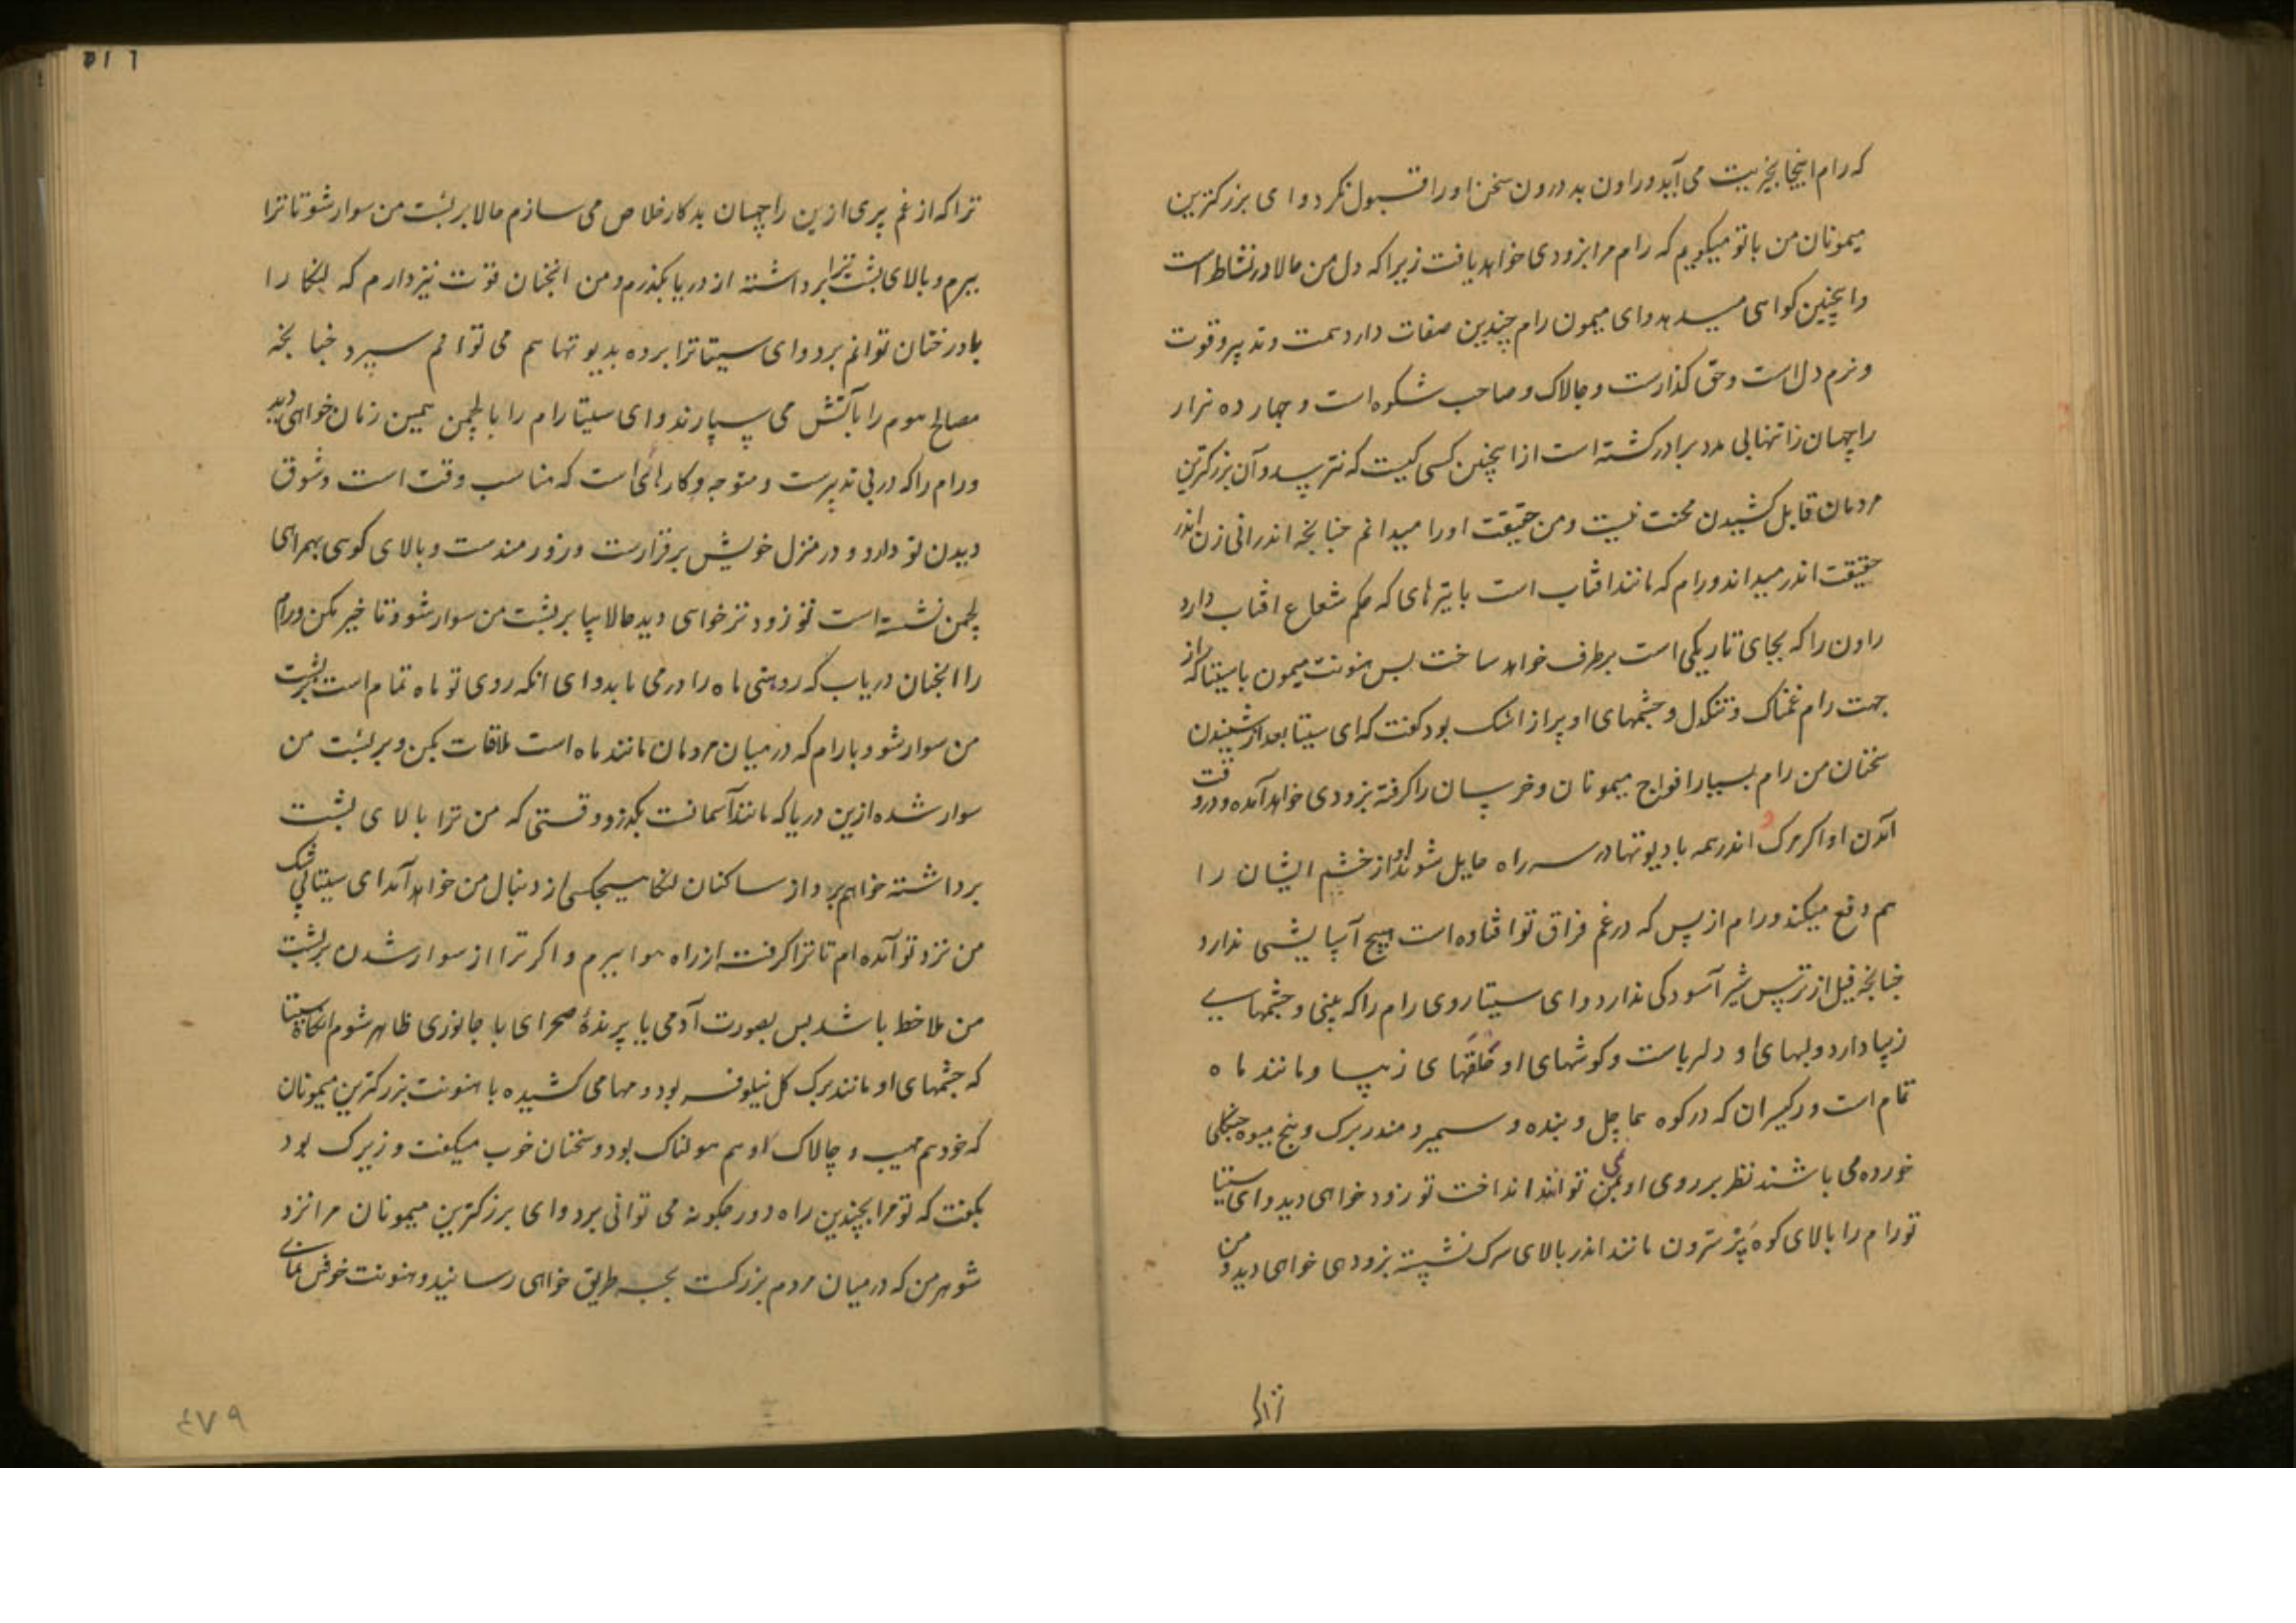 که رام اینجا بخیریت می آید و راون بد درون سخن او را قبول نکرد و ای بزرکترین
میمونان من با تو میکویم که رام مرا بزودی خواهد یافت زیرا که دل من حالا در نشاط است
و اینچنین کواهی میدهد و ای میمون رام چندین صفات دارد همت و تدبیر و قوت
و نرم دل است و حق کذارست و چالاک و صاحب شکوه است و چهارده هزار
راچهسان را تنها بی مدد برادر کشته است از اینچنین کسی کیست که نترسد و آن بزرکترین
مردمان قابل کشیدن محنت نیست و من حقیقت او را میدانم چنانچه اندرانی زن اندر
حقیقت اندر میداند و رام که مانند افتاب است با تیرهای که حکم شعاع افتاب دارد
راون را که بجای تاریکی است برطرف خواهد ساخت پس هنونت میمون با سیتا که از
جهت رام غمناک و تنکدل و چشمهای او پر از اشک بود کفت که ای سیتا بعد از شنیدن
سخنان من رام بسیار افواج میمونان و خرسان را کرفته بزودی خواهد آمد و در وقت
آمدن او اکر مرک و اندر همه با دیوتها در سر راه حایل شوند او از خشم ایشان را
هم دفع میکند و رام از بس که در غم فراق تو افتاده است هیچ آسایشی ندارد
چنانچه فیل از ترس شیر آسودکی ندارد و ای سیتا روی رام را که بینی و چشمهای
زیبا دارد و لبهای او دلرباست و کوشهای او حلقهای زیبا و مانند ماه
تمام است و رکیسران که در کوه هماچل و بنده و سمیر و مندر برک و بیخ میوه جنکلی
خورده می باشند نظر بر روی او نمی توانند انداخت تو زود خواهی دید و ای سیتا
تو رام را بالای کوه پرسرون مانند اندر بالای سرک نشسته بزودی خواهی دید و من
ترا
ترا که از غم پری ازین راچهسان بدکار خلاص می سازم حالا بر پشت من سوار شو تا ترا
ببرم و بالای پشت ترا برداشته از دریا بکذرم و من انچنان قوت نیز دارم که لنکا را
با درختان توانم برد و ای سیتا ترا برده بدیوتها هم می توانم سپرد چنانچه
مصالح هوم را بآتش می سپارند و ای سیتا رام را با لچمن همین زمان خواهی دید
و رام را که در پی تدبیرست و متوجه و کارهای است که مناسب وقت است و شوق
دیدن تو دارد و در منزل خویش برقرارست و زورمندست و بالای کوهی بهمراهی
لچمن نشسته است تو زودتر خواهی دید حالا بیا بر پشت من سوار شو و تاخیر مکن و رام
را انچنان دریاب که روهنی ماه را در می یابد و ای انکه روی تو ماه تمام است بر پشت
من سوار شو و با رام که در میان مردمان مانند ماه است ملاقات بکن و بر پشت من
سوار شده ازین دریا که مانند آسمانست بکذر و وقتی که من ترا بالای پشت
برداشته خواهم برد از ساکنان لنکا هیچکس از دنبال من خواهد آمد ای سیتا بی شک
من نزد تو آمده ام تا ترا کرفته از راه هوا ببرم و اکر ترا از سوار شدن بر پشت
من ملاحظ باشد پس بصورت آدمی یا پرندهٔ صحرای یا جانوری ظاهر شوم انکاه سیتا
که چشمهای او مانند برک کل نیلوفر بود و مها می کشیده با هنونت بزرکترین میمونان
که خود هم مهیب و چالاک او هم هولناک بود و سخنان خوب میکفت و زیرک بود
بکفت که تو مرا بچندین راه دور چکونه می توانی برد و ای بزرکترین میمونان مرا نزد
شوهر من که در میان مردم بزرکست بچه طریق خواهی رسانید و هنونت خوش نمای
٤٧٩